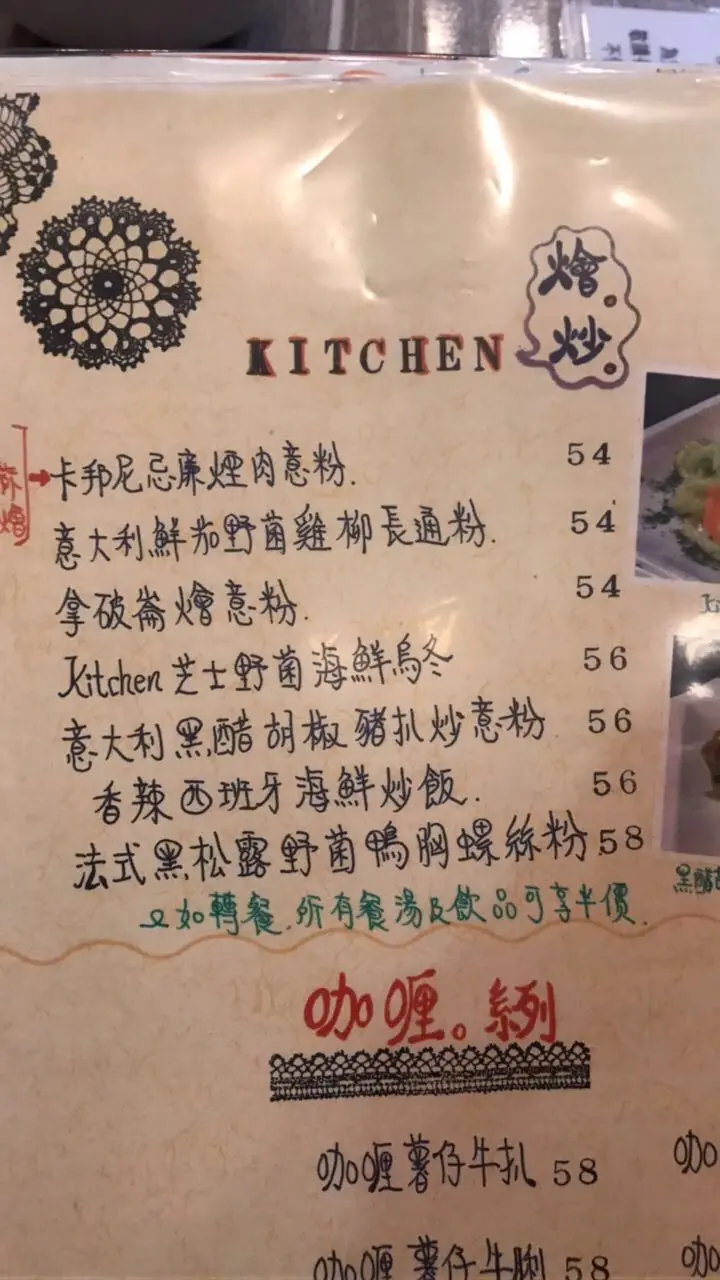 KITCHEN
燴.
炒.
卡邦尼忌廉煙肉意粉. 54
意大利鮮茄野菌雞柳長通粉. 54
拿破崙燴意粉. 54
Kitchen芝士野菌海鮮烏冬 56
意大利黑醋胡椒豬扒炒意粉 56
香辣西班牙海鮮炒飯. 56
法式黑松露野菌鴨胸螺絲粉 58
又如轉餐.所有餐湯及飲品可享半價.
咖喱。系列
咖喱薯仔牛扒 58
咖喱薯仔牛脷 58
咖
咖
黑醋